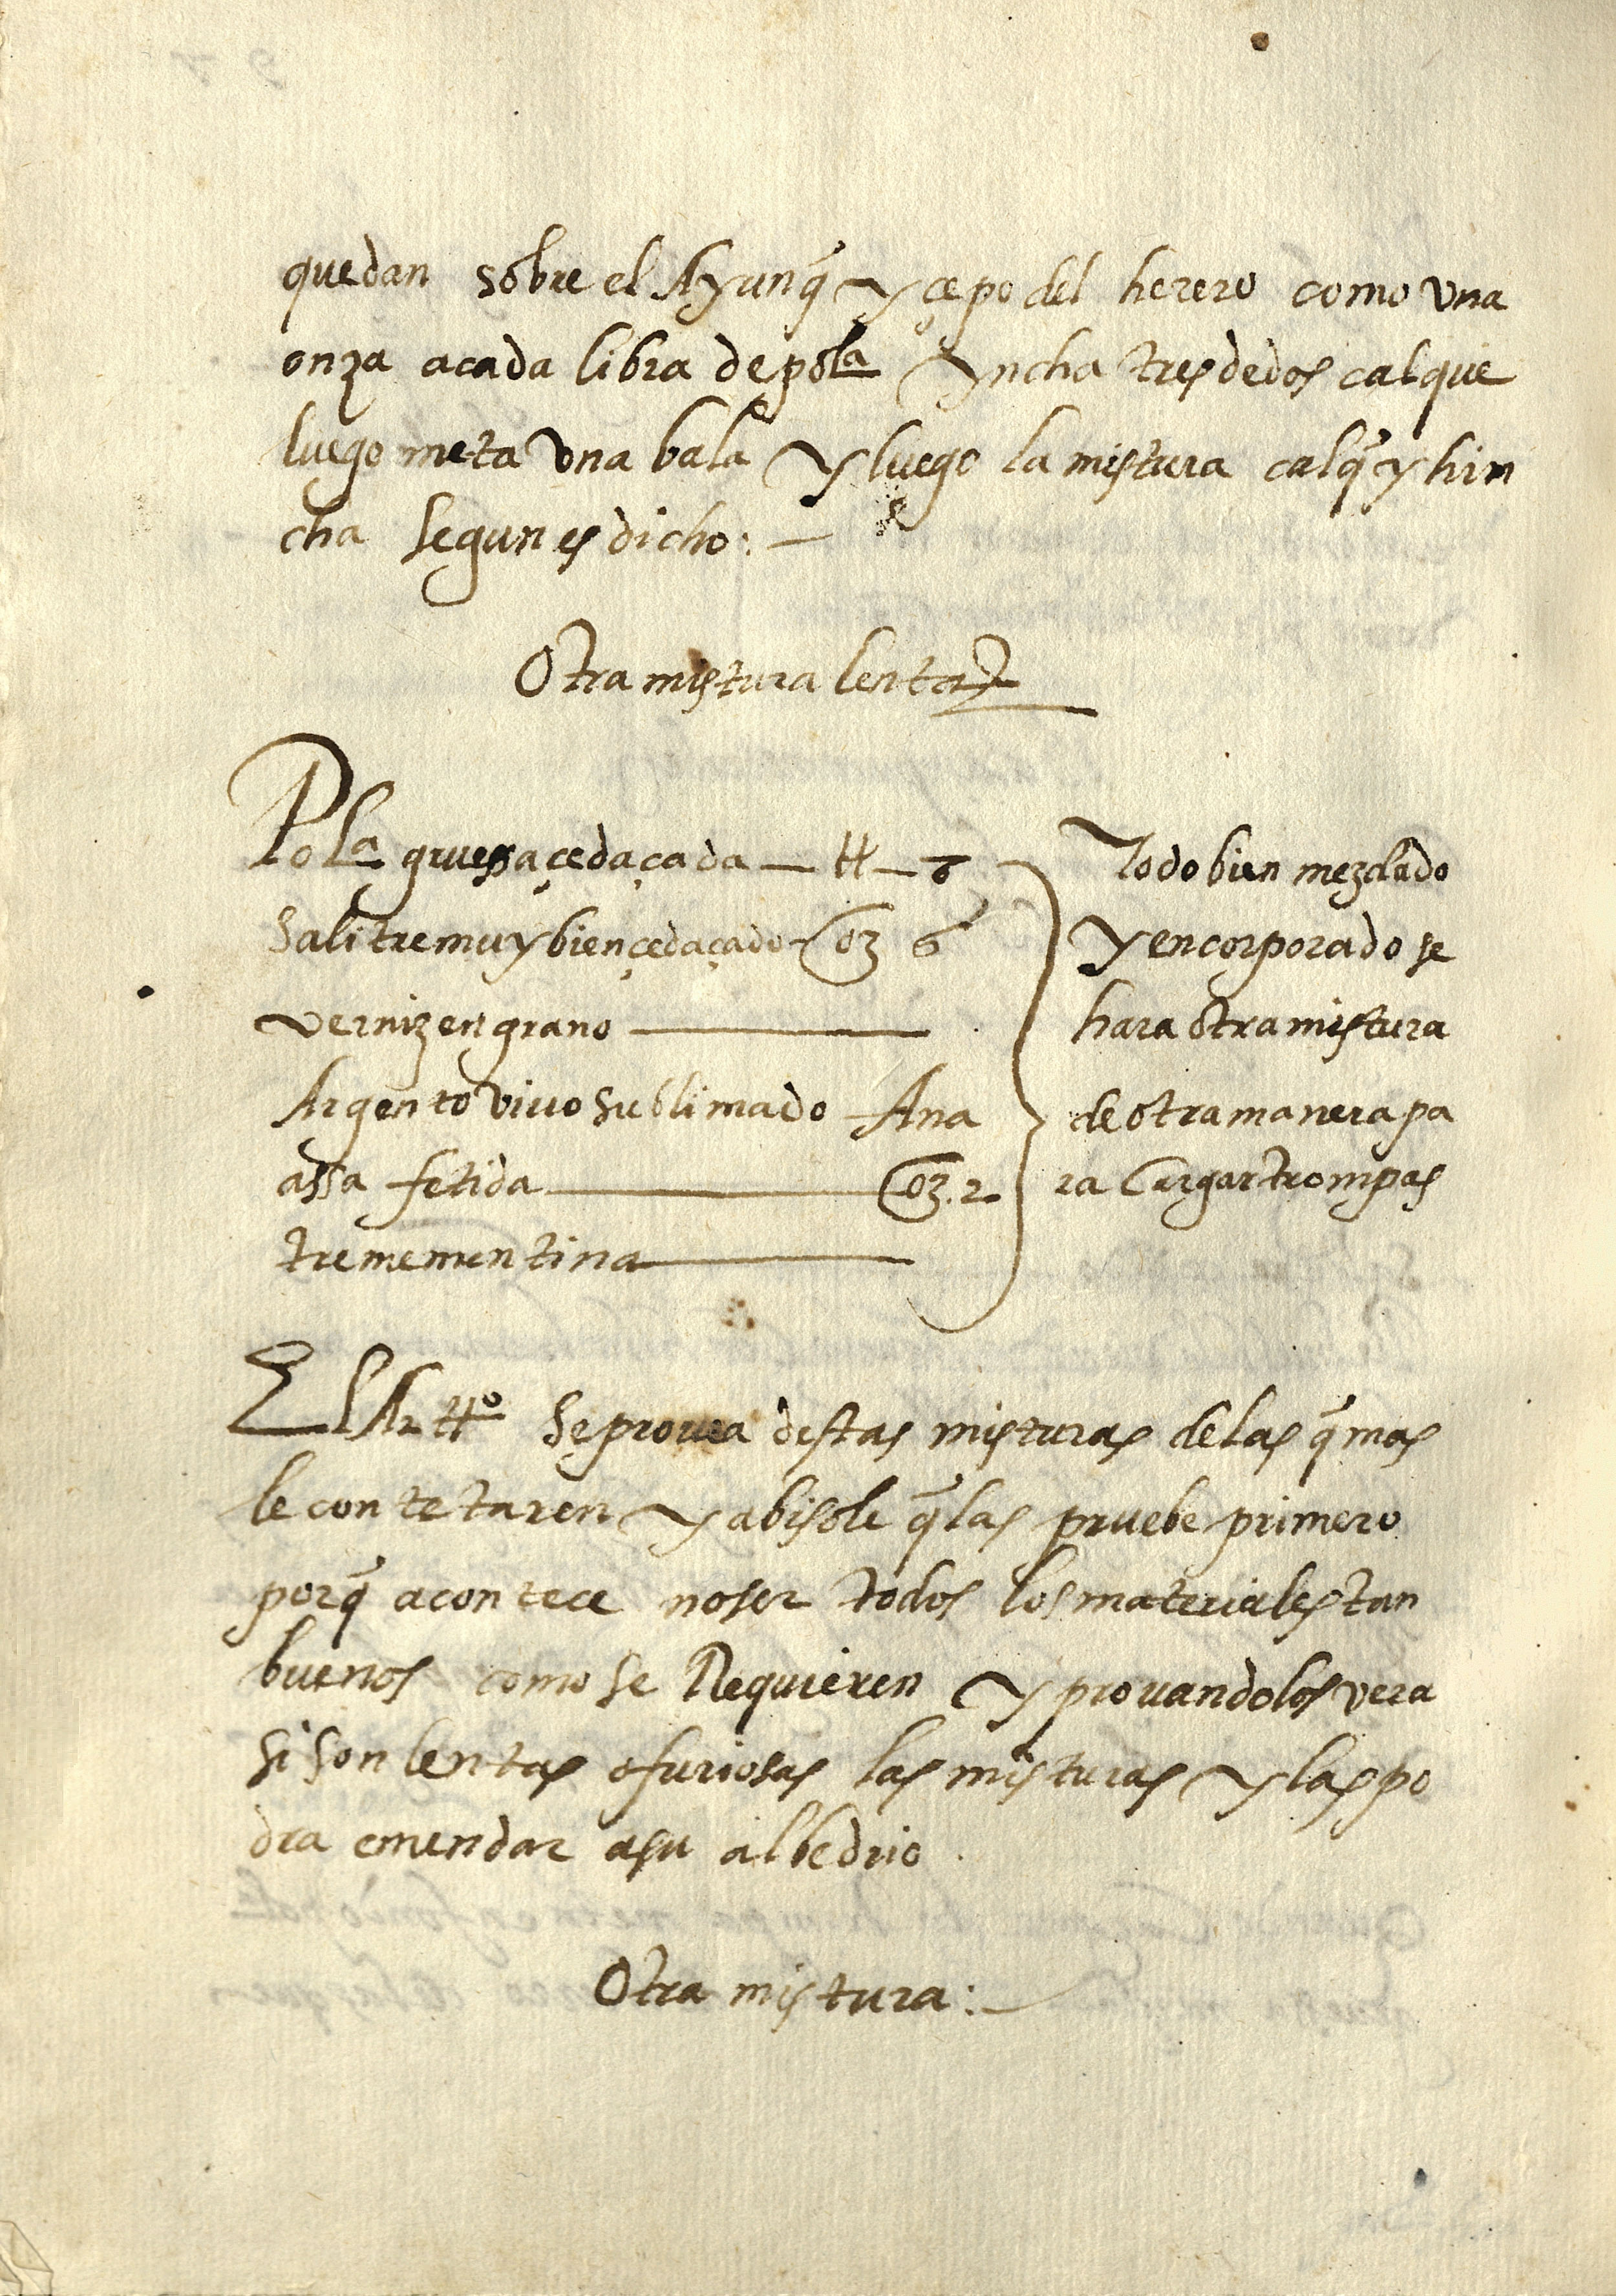 quedan sobre el Ayunq̃ y çepo del herero como una
onza acada libra de pola yncha tres dedos calque
luego meta una bala y luego la mistura calq̃ y hin
cha segun es dicho:—
Otra mistura lenta
Pola gruessa çedaçada — tt — 6
Salitre muy bien çedaçado — oz 6
verniz en grano —
Argento vivo sublimado Ana
assa fetida — oz. 2
trementina —
Todo bien mezclado
y encorporado se
hara otra mistura
de otra manera pa
ra Cargar trompas
El Artto se provea destas misturas de las q̃ mas
le contetaren y abisole q̃ las pruebe primero
porq̃ acontece no ser todos los materiales tan
buenos como se Requieren y provandolos vera
si son lentas o furiosas las misturas y las po
dra emendar a su albedrio.
Otra mistura:—